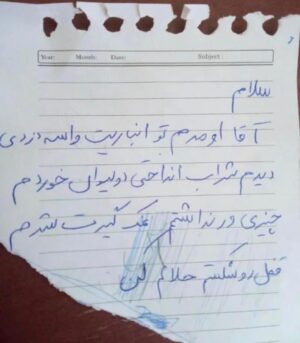 Year: Month: Date: Subject:
سلام
آقا اومدم تو انباریت واسه دزدی
دیدم شراب انداختی دو لیوان خوردم
چیزی ورنداشتم نمک گیرت شدم
قفل رو شکستم حلالم کن